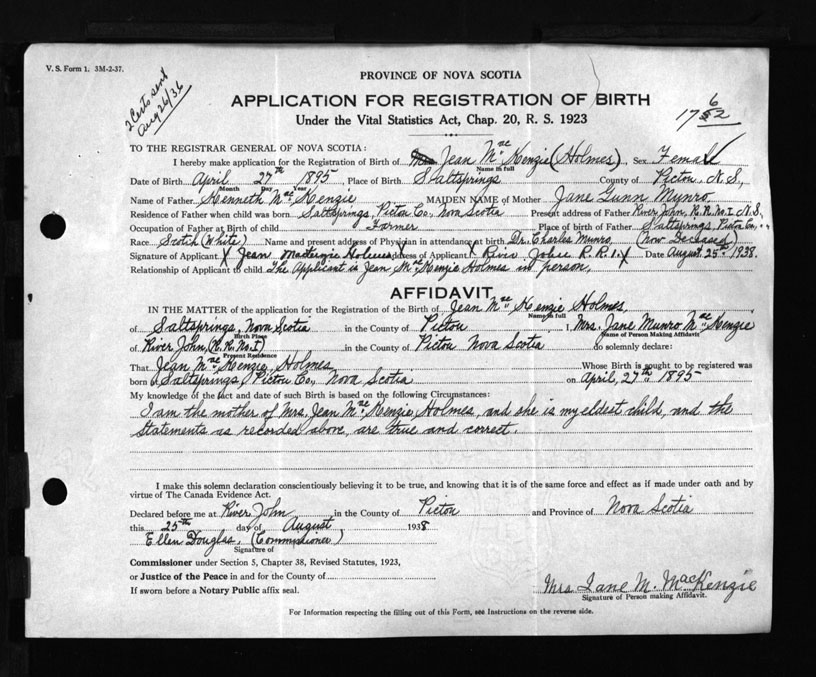 V. S. Form 1. 3M-2-37.
2 Certs sent
Aug 26/38
PROVINCE OF NOVA SCOTIA
APPLICATION FOR REGISTRATION OF BIRTH
Under the Vital Statistics Act, Chap. 20, R. S. 1923
17
TO THE REGISTRAR GENERAL OF NOVA SCOTIA:
I hereby make application for the Registration of Birth of Jean Mac Kenzie (Holmes), Sex Female
Name in full
Date of Birth April 27th 1895 Place of Birth Saltsprings County of Pictou, N.S.,
Month Day Year
Name of Father Kenneth Mac Kenzie MAIDEN NAME of Mother Jane Gunn Munro
Residence of Father when child was born Saltsprings, Pictou Co., Nova Scotia Present address of Father River John, R.R. No. 1, N.S.,
Occupation of Father at Birth of child Farmer Place of birth of Father Saltsprings, Pictou Co.,
Race Scotch (White) Name and present address of Physician in attendance at birth Dr. Charles Munro, (Now Deceased)
Signature of Applicant X Jean MacKenzie Holmes Address of Applicant X River John R.R. 1. X Date August, 25th, 1938.
Relationship of Applicant to child The Applicant is Jean Mac Kenzie Holmes in person.
AFFIDAVIT
IN THE MATTER of the application for the Registration of the Birth of Jean Mac Kenzie Holmes,
Name in full
of Saltsprings, Nova Scotia in the County of Pictou I, Mrs. Jane Munro Mac Kenzie
Birth Place Name of Person Making Affidavit
of River John, (R.R. No. 1) in the County of Pictou Nova Scotia do solemnly declare:
Present Residence
That Jean Mac Kenzie, Holmes Whose Birth is sought to be registered was
born at Saltsprings, Pictou Co., Nova Scotia on April, 27th 1895
My knowledge of the fact and date of such Birth is based on the following Circumstances:
I am the mother of Mrs. Jean Mac Kenzie, Holmes, and she is my eldest child, and the
statements as recorded above, are true and correct.
I make this solemn declaration conscientiously believing it to be true, and knowing that it is of the same force and effect as if made under oath and by
virtue of The Canada Evidence Act.
Declared before me at River John in the County of Pictou and Province of Nova Scotia
this 25th day of August 1938
Ellen Douglas, (Commissioner)
Signature of
Commissioner under Section 5, Chapter 38, Revised Statutes, 1923,
or Justice of the Peace in and for the County of
If sworn before a Notary Public affix seal.
Mrs. Jane M. MacKenzie
Signature of Person making Affidavit.
For Information respecting the filling out of this Form, see Instructions on the reverse side.